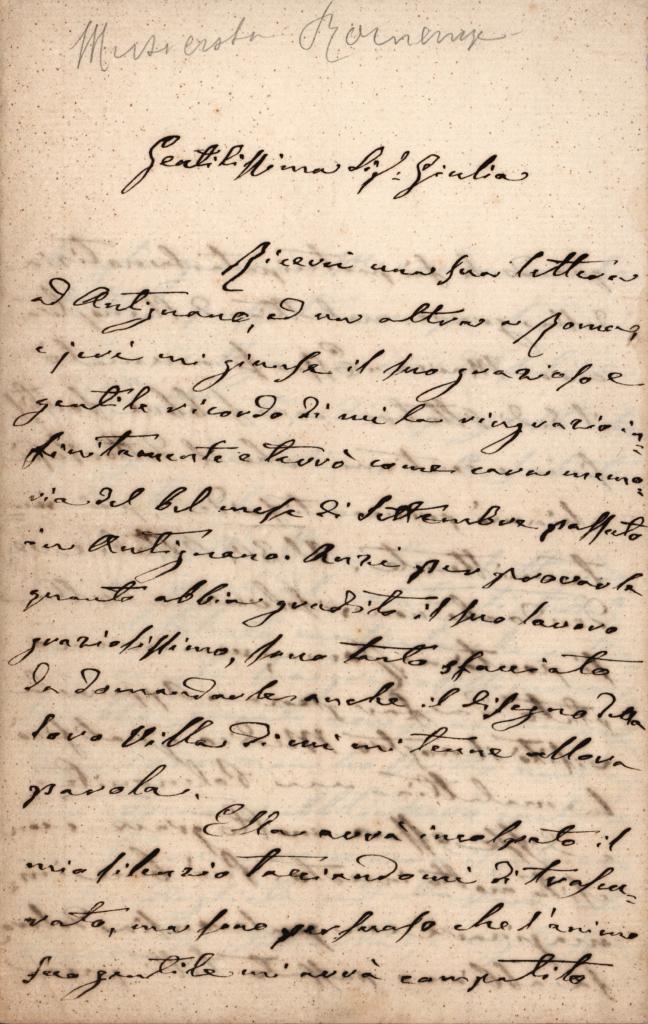 Gentilissima Sig.ª Giulia
Ricevei una sua lettera
ad Antignano, ed un altra a Roma,
e jeri mi giunse il suo grazioso e
gentile ricordo di cui la ringrazio in=
finitamente e terrò come cara memo=
ria del bel mese di Settembre passato
in Antignano. Anzi per provarle
quanto abbia gradito il suo lavoro
graziosissimo, sono tanto sfacciato
da domandarle anche il disegno della
loro Villa di cui mi tenne allora
parola.
Ella avrà incolpato il
mio silenzio tacciandomi di trascu=
rato, ma sono persuaso che l'animo
suo gentile mi avrà compatito